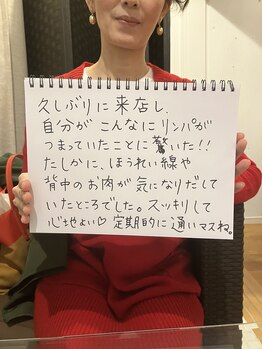 久しぶりに来店し、
自分がこんなにリンパが
つまっていたことに驚いた!!
たしかに、ほうれい線や
背中のお肉が気になりだして
いたところでした。スッキリして
心地よい♡定期的に通いマスね。